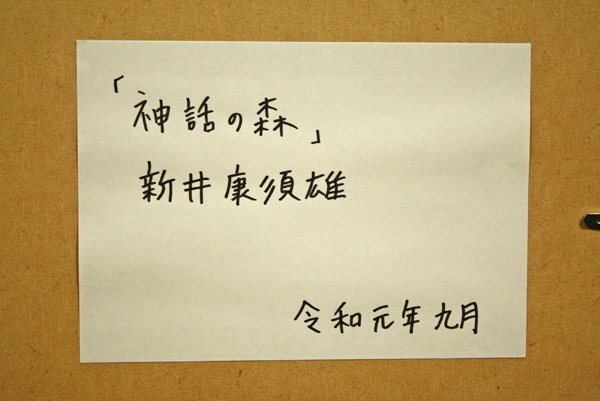 「神話の森」
新井康須雄
令和元年九月